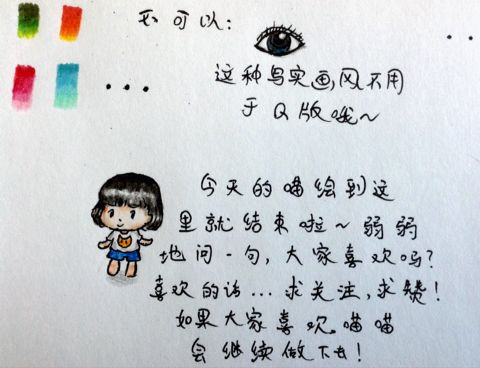 不可以：
...
...
这种写实画风不用
于Q版哦~
今天的喵绘到这
里就结束啦~弱弱
地问一句，大家喜欢吗？
喜欢的话...求关注，求赞！
如果大家喜欢。喵喵
会继续做下去！